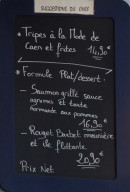 SUGGESTIONS DU CHEF
* Tripes à la Mode de
Caen et frites
14,90€
* Formule Plat/dessert :
- Saumon grillé sauce
agrumes et tarte
normande aux pommes
16,90€
- Rouget Barbet meunière
et île flottante
20,90
Prix Net